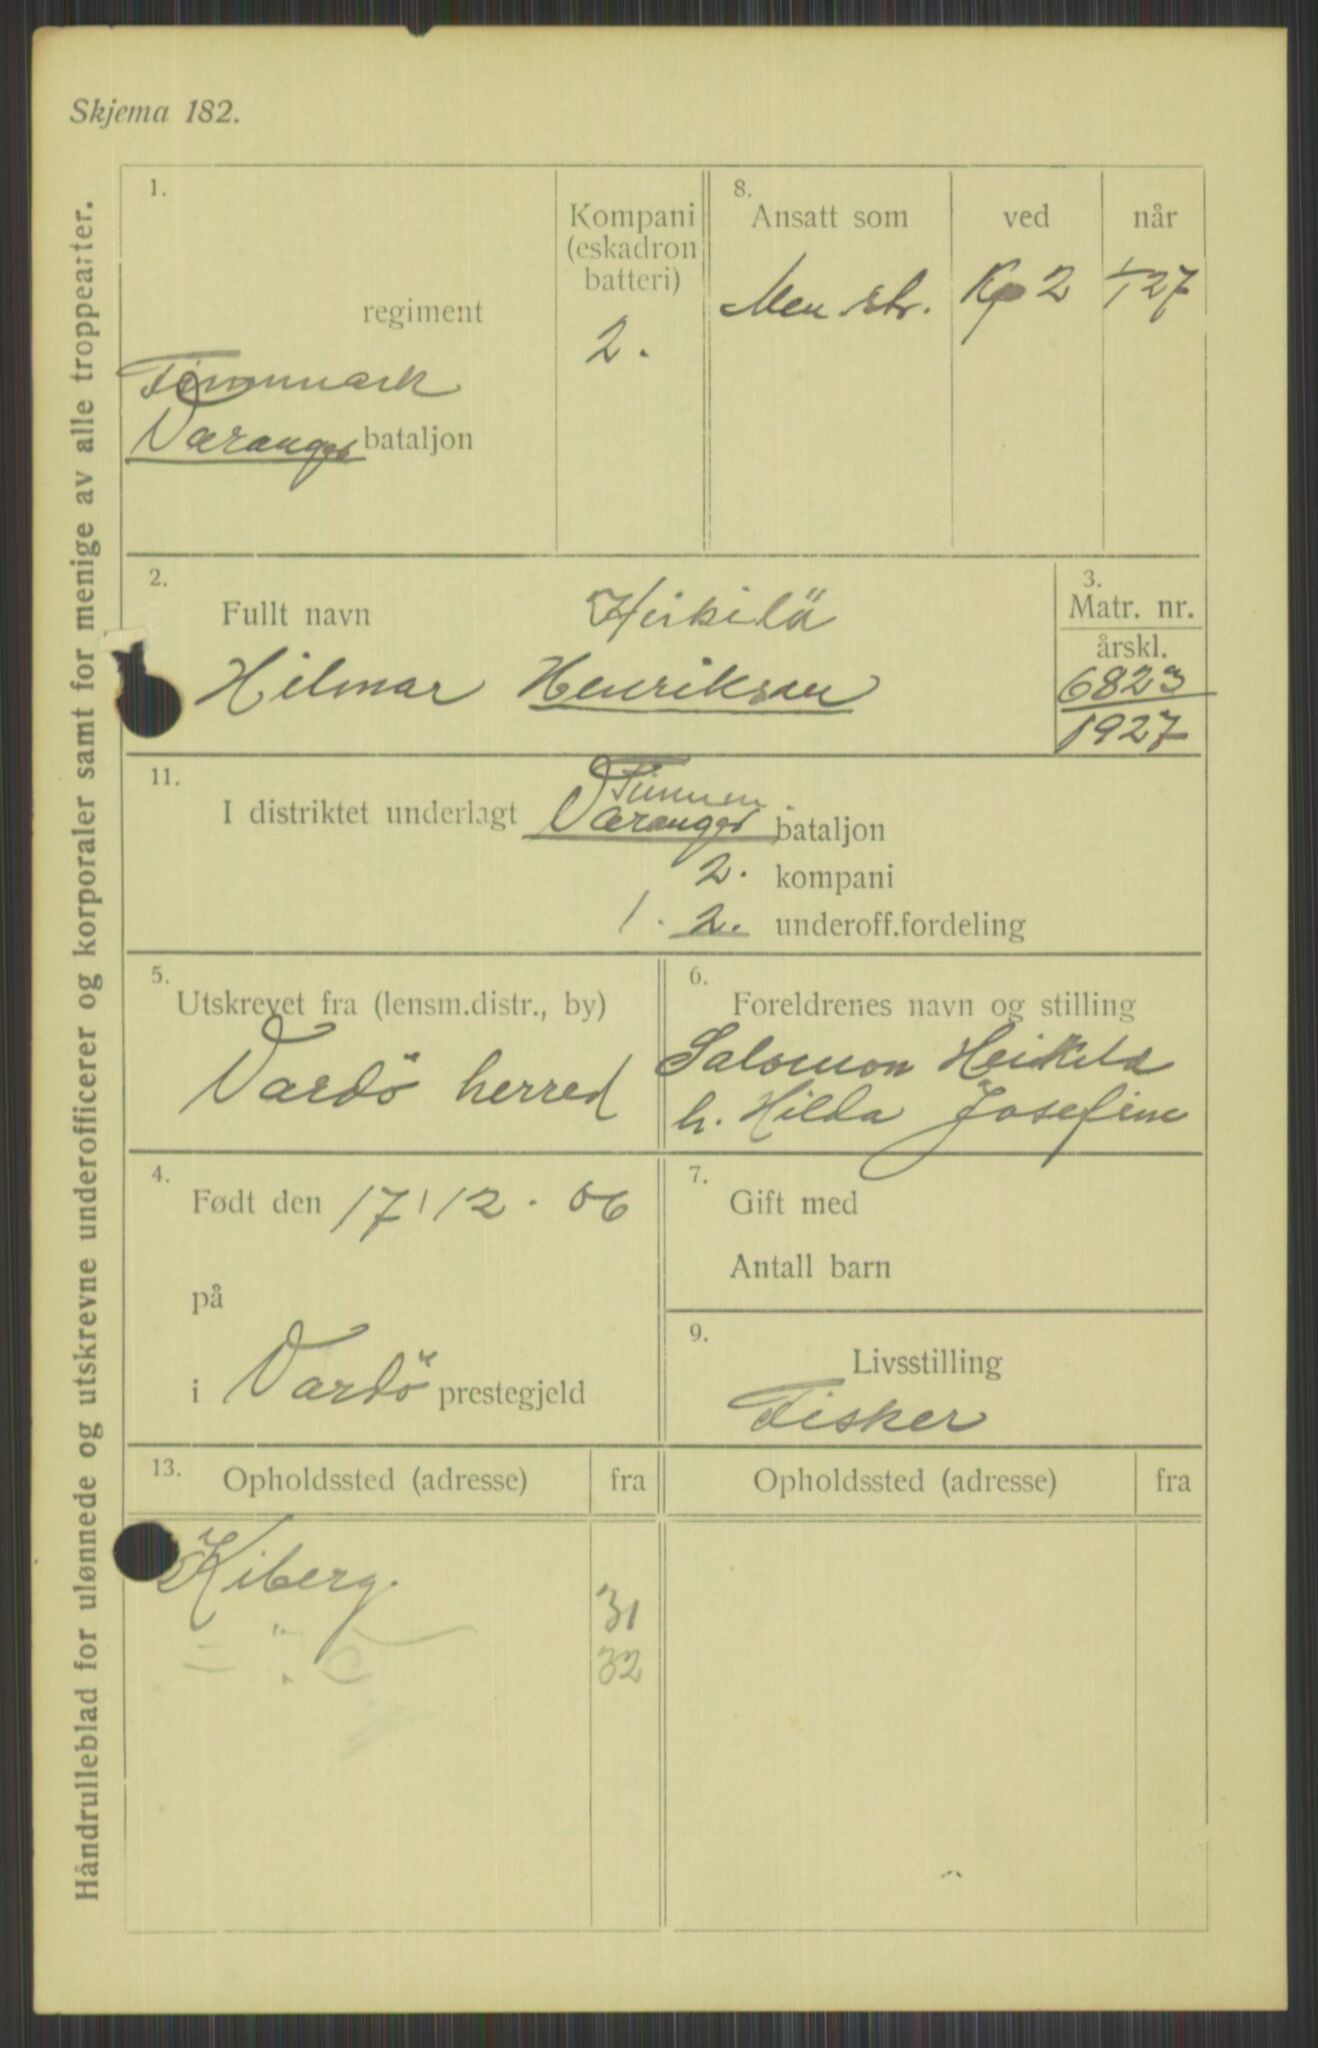 Skjema 182.
Håndrulleblad for ulønnede og utskrevne underofficerer og korporaler samt for menige av alle troppearter.
1.
regiment
Finnmark
Varanger bataljon
Kompani
(eskadron
batteri)
2.
8.
Ansatt som
ved
når
Men. str.
Kp 2
1/1 27
2.
Fullt navn
Heikilä
Hilmar Henriksen
3.
Matr. nr.
årskl.
6823
1927
11.
Finnm.
I distriktet underlagt Varanger bataljon
2. kompani
1. 2. underoff.fordeling
5.
Utskrevet fra (lensm.distr., by)
Vardö herred
6.
Foreldrenes navn og stilling
Salomon Heikilä
h. Hilda Josefine
4.
Født den 17/12. 06
på
i Vardö prestegjeld
7.
Gift med
Antall barn
9.
Livsstilling
Fisker
13.
Opholdssted (adresse)
fra
Opholdssted (adresse)
fra
Kiberg.
31
= " =
32